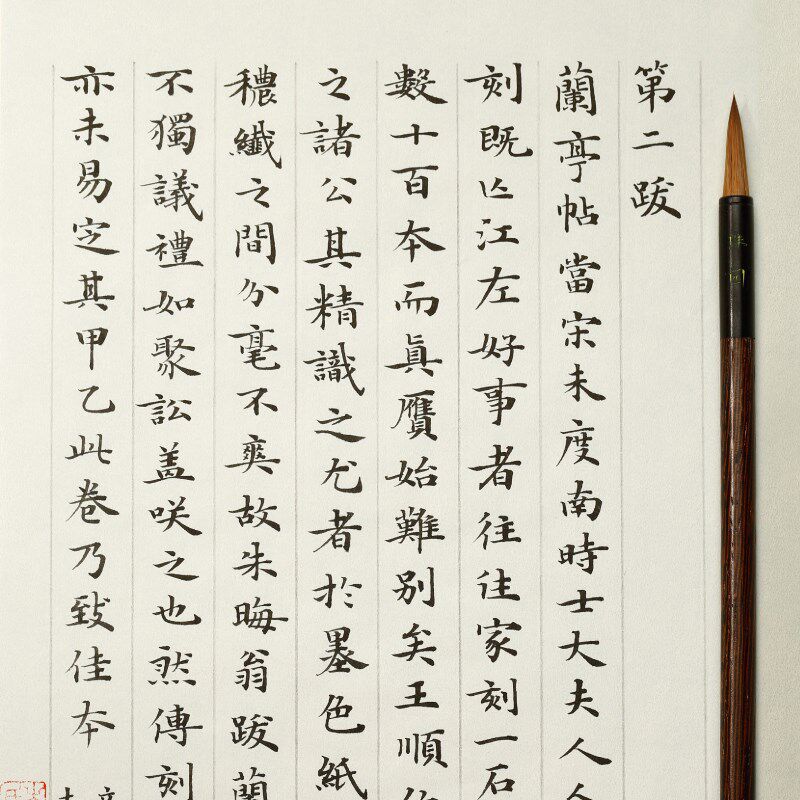 第二跋
蘭亭帖當宋未度南時士大夫人人
刻既亡江左好事者往往家刻一石
數十百本而真贗始難別矣王順伯
之諸公其精識之尤者於墨色紙
穠纖之間分毫不爽故朱晦翁跋蘭
不獨議禮如聚訟蓋咲之也然傳刻
亦未易定其甲乙此卷乃致佳本